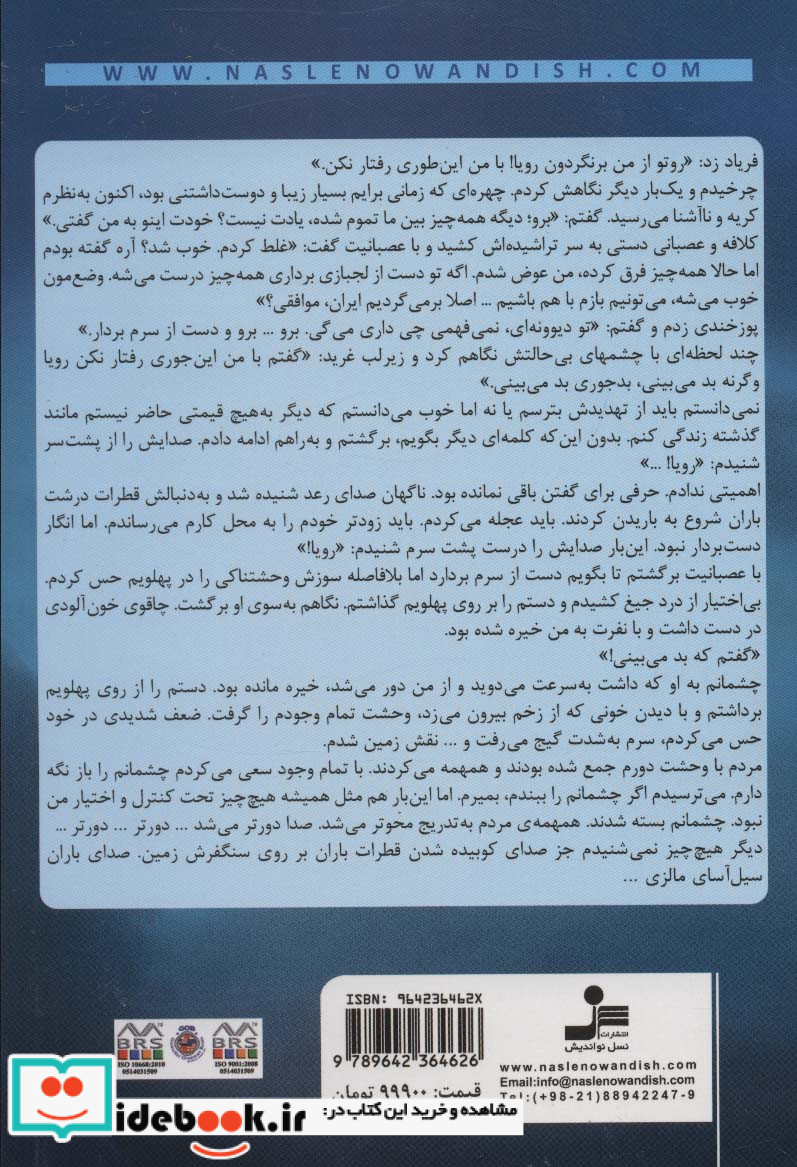 WWW.NASLENOWANDISH.COM
فریاد زد: «روتو از من برنگردون رویا! با من این‌طوری رفتار نکن.»
چرخیدم و یک‌بار دیگر نگاهش کردم. چهره‌ای که زمانی برایم بسیار زیبا و دوست‌داشتنی بود، اکنون به‌نظرم
کریه و ناآشنا می‌رسید. گفتم: «برو؛ دیگه همه‌چیز بین ما تموم شده، یادت نیست؟ خودت اینو به من گفتی.»
کلافه و عصبانی دستی به سر تراشیده‌اش کشید و با عصبانیت گفت: «غلط کردم. خوب شد؟ آره گفته بودم
اما حالا همه‌چیز فرق کرده، من عوض شدم. اگه تو دست از لجبازی برداری همه‌چیز درست می‌شه. وضع‌مون
خوب می‌شه، می‌تونیم بازم با هم باشیم ... اصلا برمی‌گردیم ایران، موافقی؟»
پوزخندی زدم و گفتم: «تو دیوونه‌ای، نمی‌فهمی چی داری می‌گی. برو ... برو و دست از سرم بردار.»
چند لحظه‌ای با چشمهای بی‌حالتش نگاهم کرد و زیرلب غرید: «گفتم با من این‌جوری رفتار نکن رویا
وگرنه بد می‌بینی، بدجوری بد می‌بینی.»
نمی‌دانستم باید از تهدیدش بترسم یا نه اما خوب می‌دانستم که دیگر به‌هیچ قیمتی حاضر نیستم مانند
گذشته زندگی کنم. بدون این‌که کلمه‌ای دیگر بگویم، برگشتم و به‌راهم ادامه دادم. صدایش را از پشت‌سر
شنیدم: «رویا! ...»
اهمیتی ندادم. حرفی برای گفتن باقی نمانده بود. ناگهان صدای رعد شنیده شد و به‌دنبالش قطرات درشت
باران شروع به باریدن کردند. باید عجله می‌کردم. باید زودتر خودم را به محل کارم می‌رساندم. اما انگار
دست‌بردار نبود. این‌بار صدایش را درست پشت سرم شنیدم: «رویا!»
با عصبانیت برگشتم تا بگویم دست از سرم بردارد اما بلافاصله سوزش وحشتناکی را در پهلویم حس کردم.
بی‌اختیار از درد جیغ کشیدم و دستم را بر روی پهلویم گذاشتم. نگاهم به‌سوی او برگشت. چاقوی خون‌آلودی
در دست داشت و با نفرت به من خیره شده بود.
«گفتم که بد می‌بینی!»
چشمانم به او که داشت به‌سرعت می‌دوید و از من دور می‌شد، خیره مانده بود. دستم را از روی پهلویم
برداشتم و با دیدن خونی که از زخم بیرون می‌زد، وحشت تمام وجودم را گرفت. ضعف شدیدی در خود
حس می‌کردم، سرم به‌شدت گیج می‌رفت و ... نقش زمین شدم.
مردم با وحشت دورم جمع شده بودند و همهمه می‌کردند. با تمام وجود سعی می‌کردم چشمانم را باز نگه
دارم. می‌ترسیدم اگر چشمانم را ببندم، بمیرم. اما این‌بار هم مثل همیشه هیچ‌چیز تحت کنترل و اختیار من
نبود. چشمانم بسته شدند. همهمه‌ی مردم به‌تدریج محوتر می‌شد. صدا دورتر می‌شد ... دورتر ... دورتر ...
دیگر هیچ‌چیز نمی‌شنیدم جز صدای کوبیده شدن قطرات باران بر روی سنگفرش زمین. صدای باران
سیل‌آسای مالزی ...
ISBN: 964236462X
9 789642 364626
قیمت: ۹۹۹۰۰ تومان
انتشارات
نسل نواندیش
www.naslenowandish.com
Email:info@naslenowandish.com
Tel:(+98-21)88942247-9
BRS
ISO 10668:2010
0514031509
GOB
BRS
ISO 9001:2008
0514031509
idebook.ir
مشاهده و خرید این کتاب در: